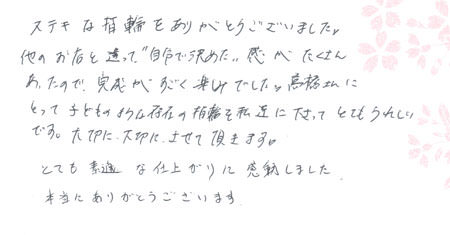 ステキな指輪をありがとうございました。
他のお店と違って"自分で決めた"感がたくさん
あったので、完成がすごく楽しみでした。高橋さんに
とって子どものような存在の指輪を私達に下さってとてもうれしい
です。大切に、大切に、させて頂きます。
とても素適な仕上がりに感動しました
本当にありがとうございます